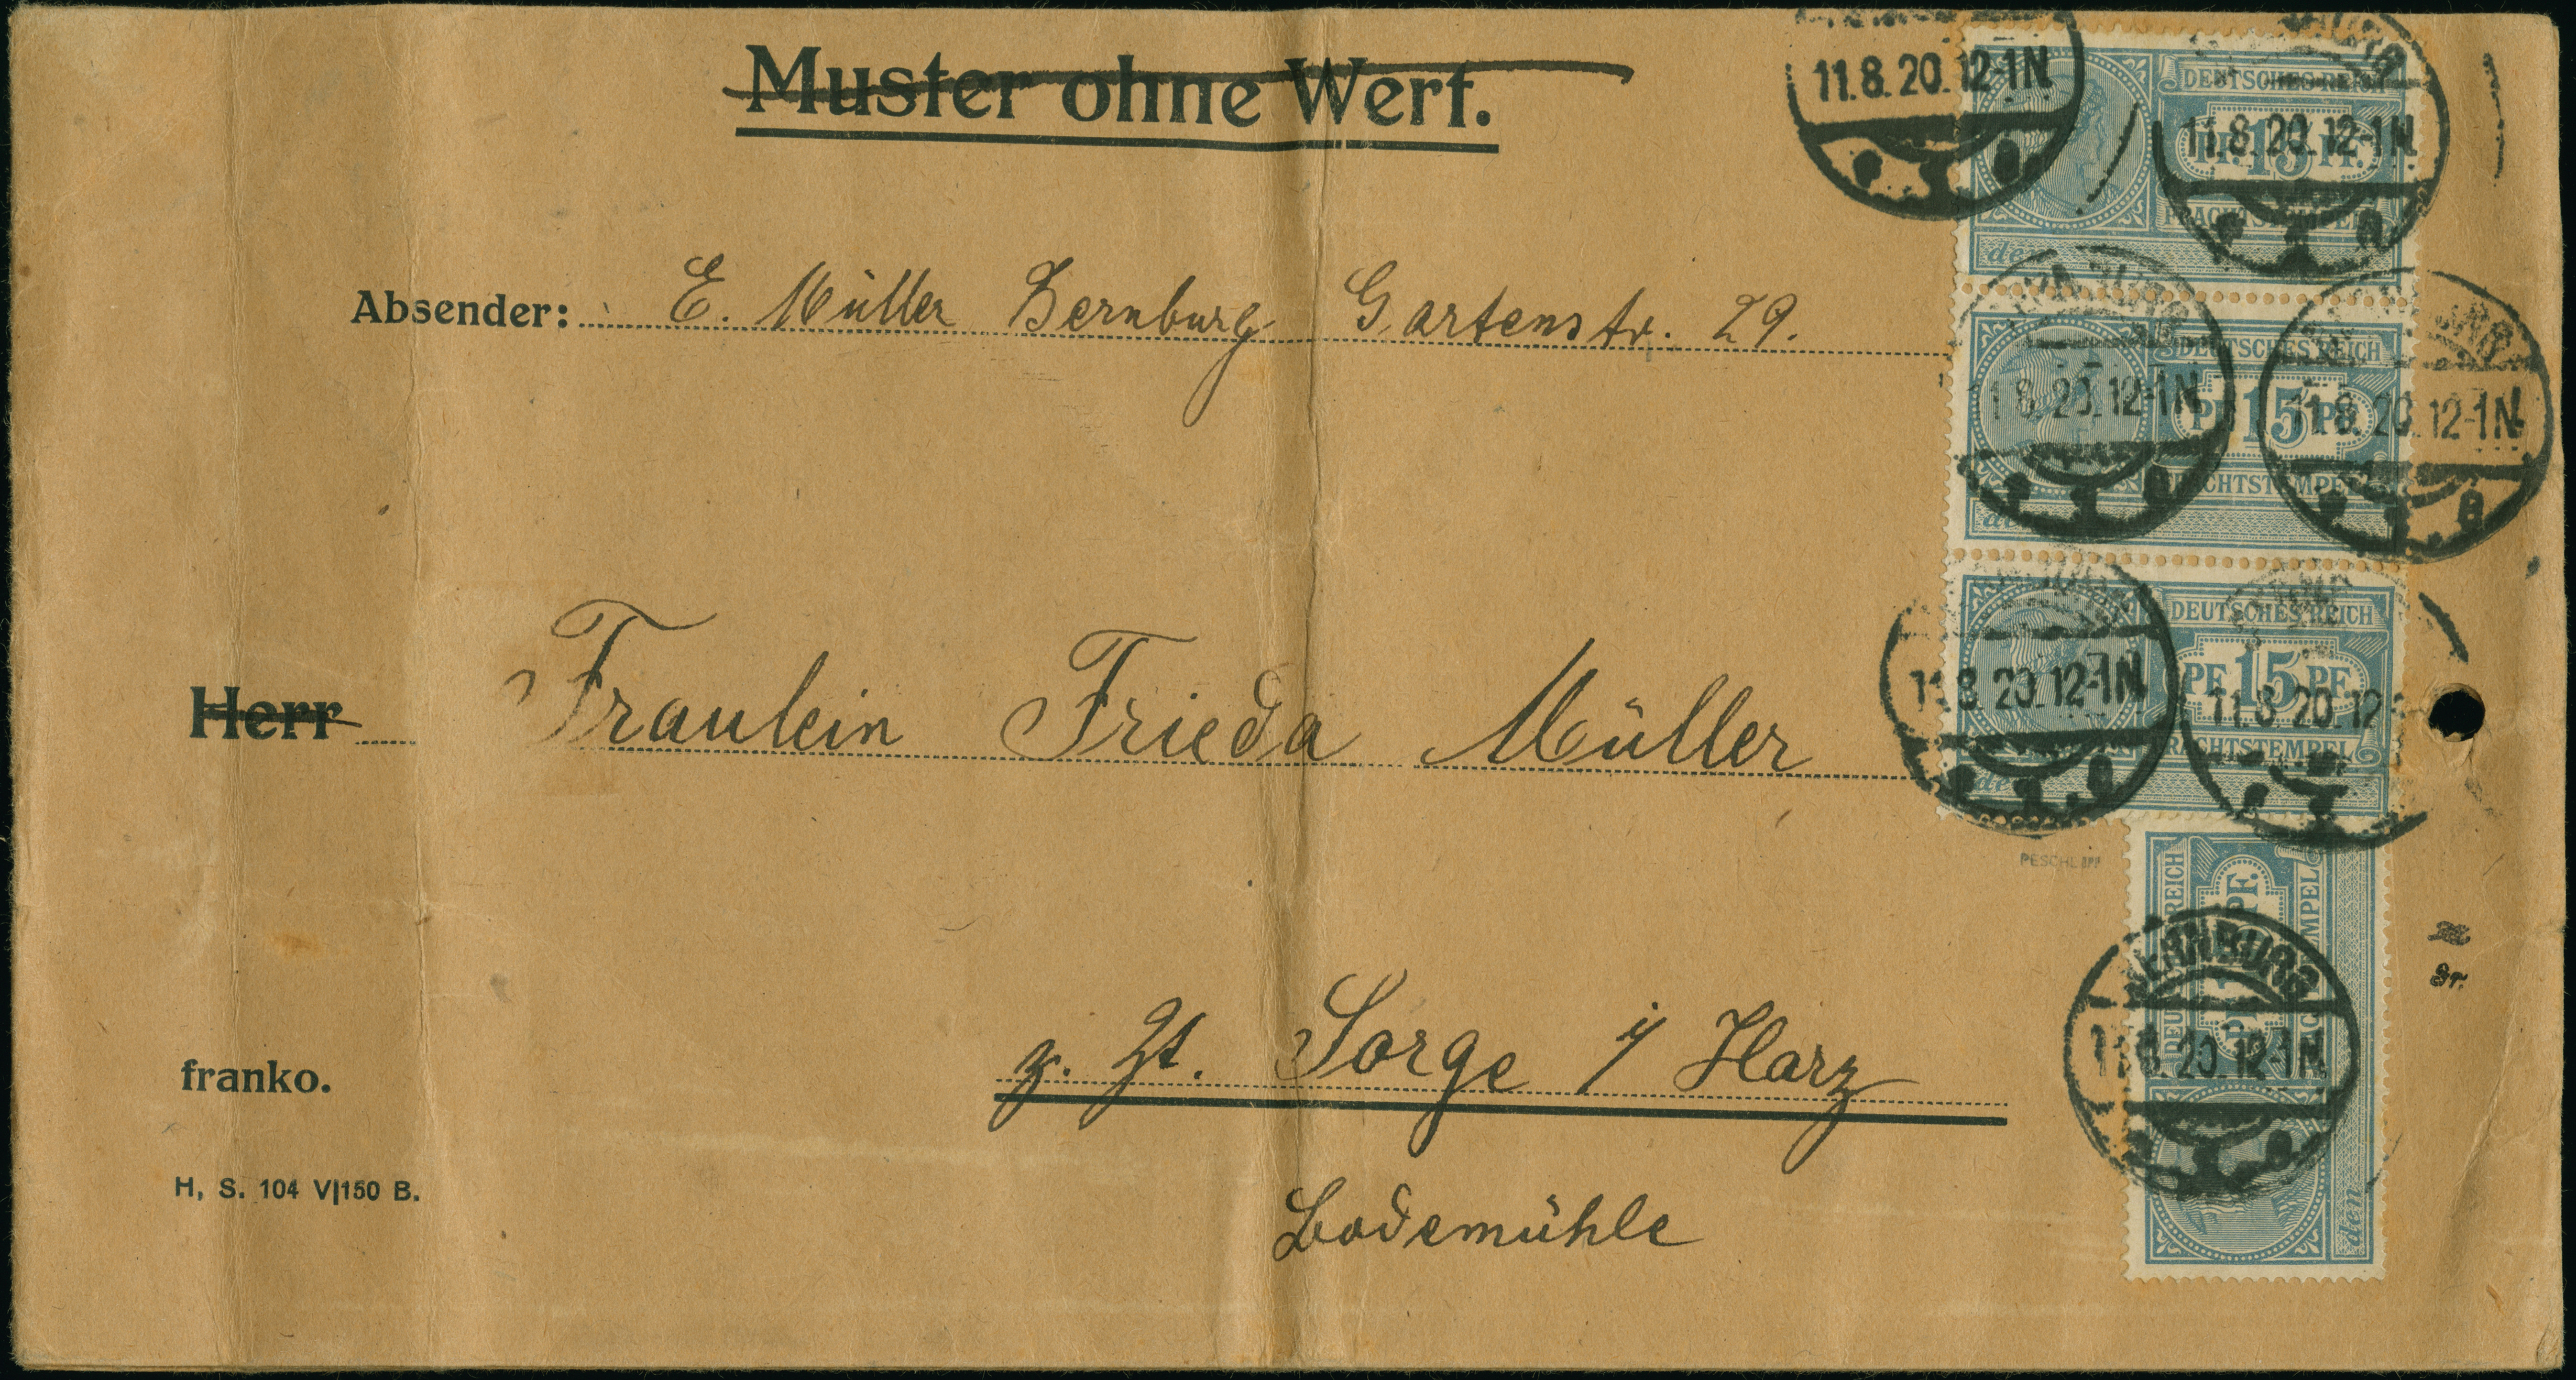 Muster ohne Wert.
11.8.20.12-1N
DEUTSCHES REICH
PF. 15 PF.
FRACHTSTEMPEL
11.8.20.12-1N
Absender: E. Müller Bernburg Gartenstr. 29.
DEUTSCHES REICH
PF 15 PF
FRACHTSTEMPEL
11.8.20.12-1N
11.8.20.12-1N
Herr Fraulein Frieda Müller
DEUTSCHES REICH
PF 15 PF
FRACHTSTEMPEL
11.8.20.12-1N
11.8.20.12
PESCHL BPP
z. Zt. Sorge i/ Harz
franko.
Bodemühle
H, S. 104 V|150 B.
BERNBURG
11.8.20.12-1N
den